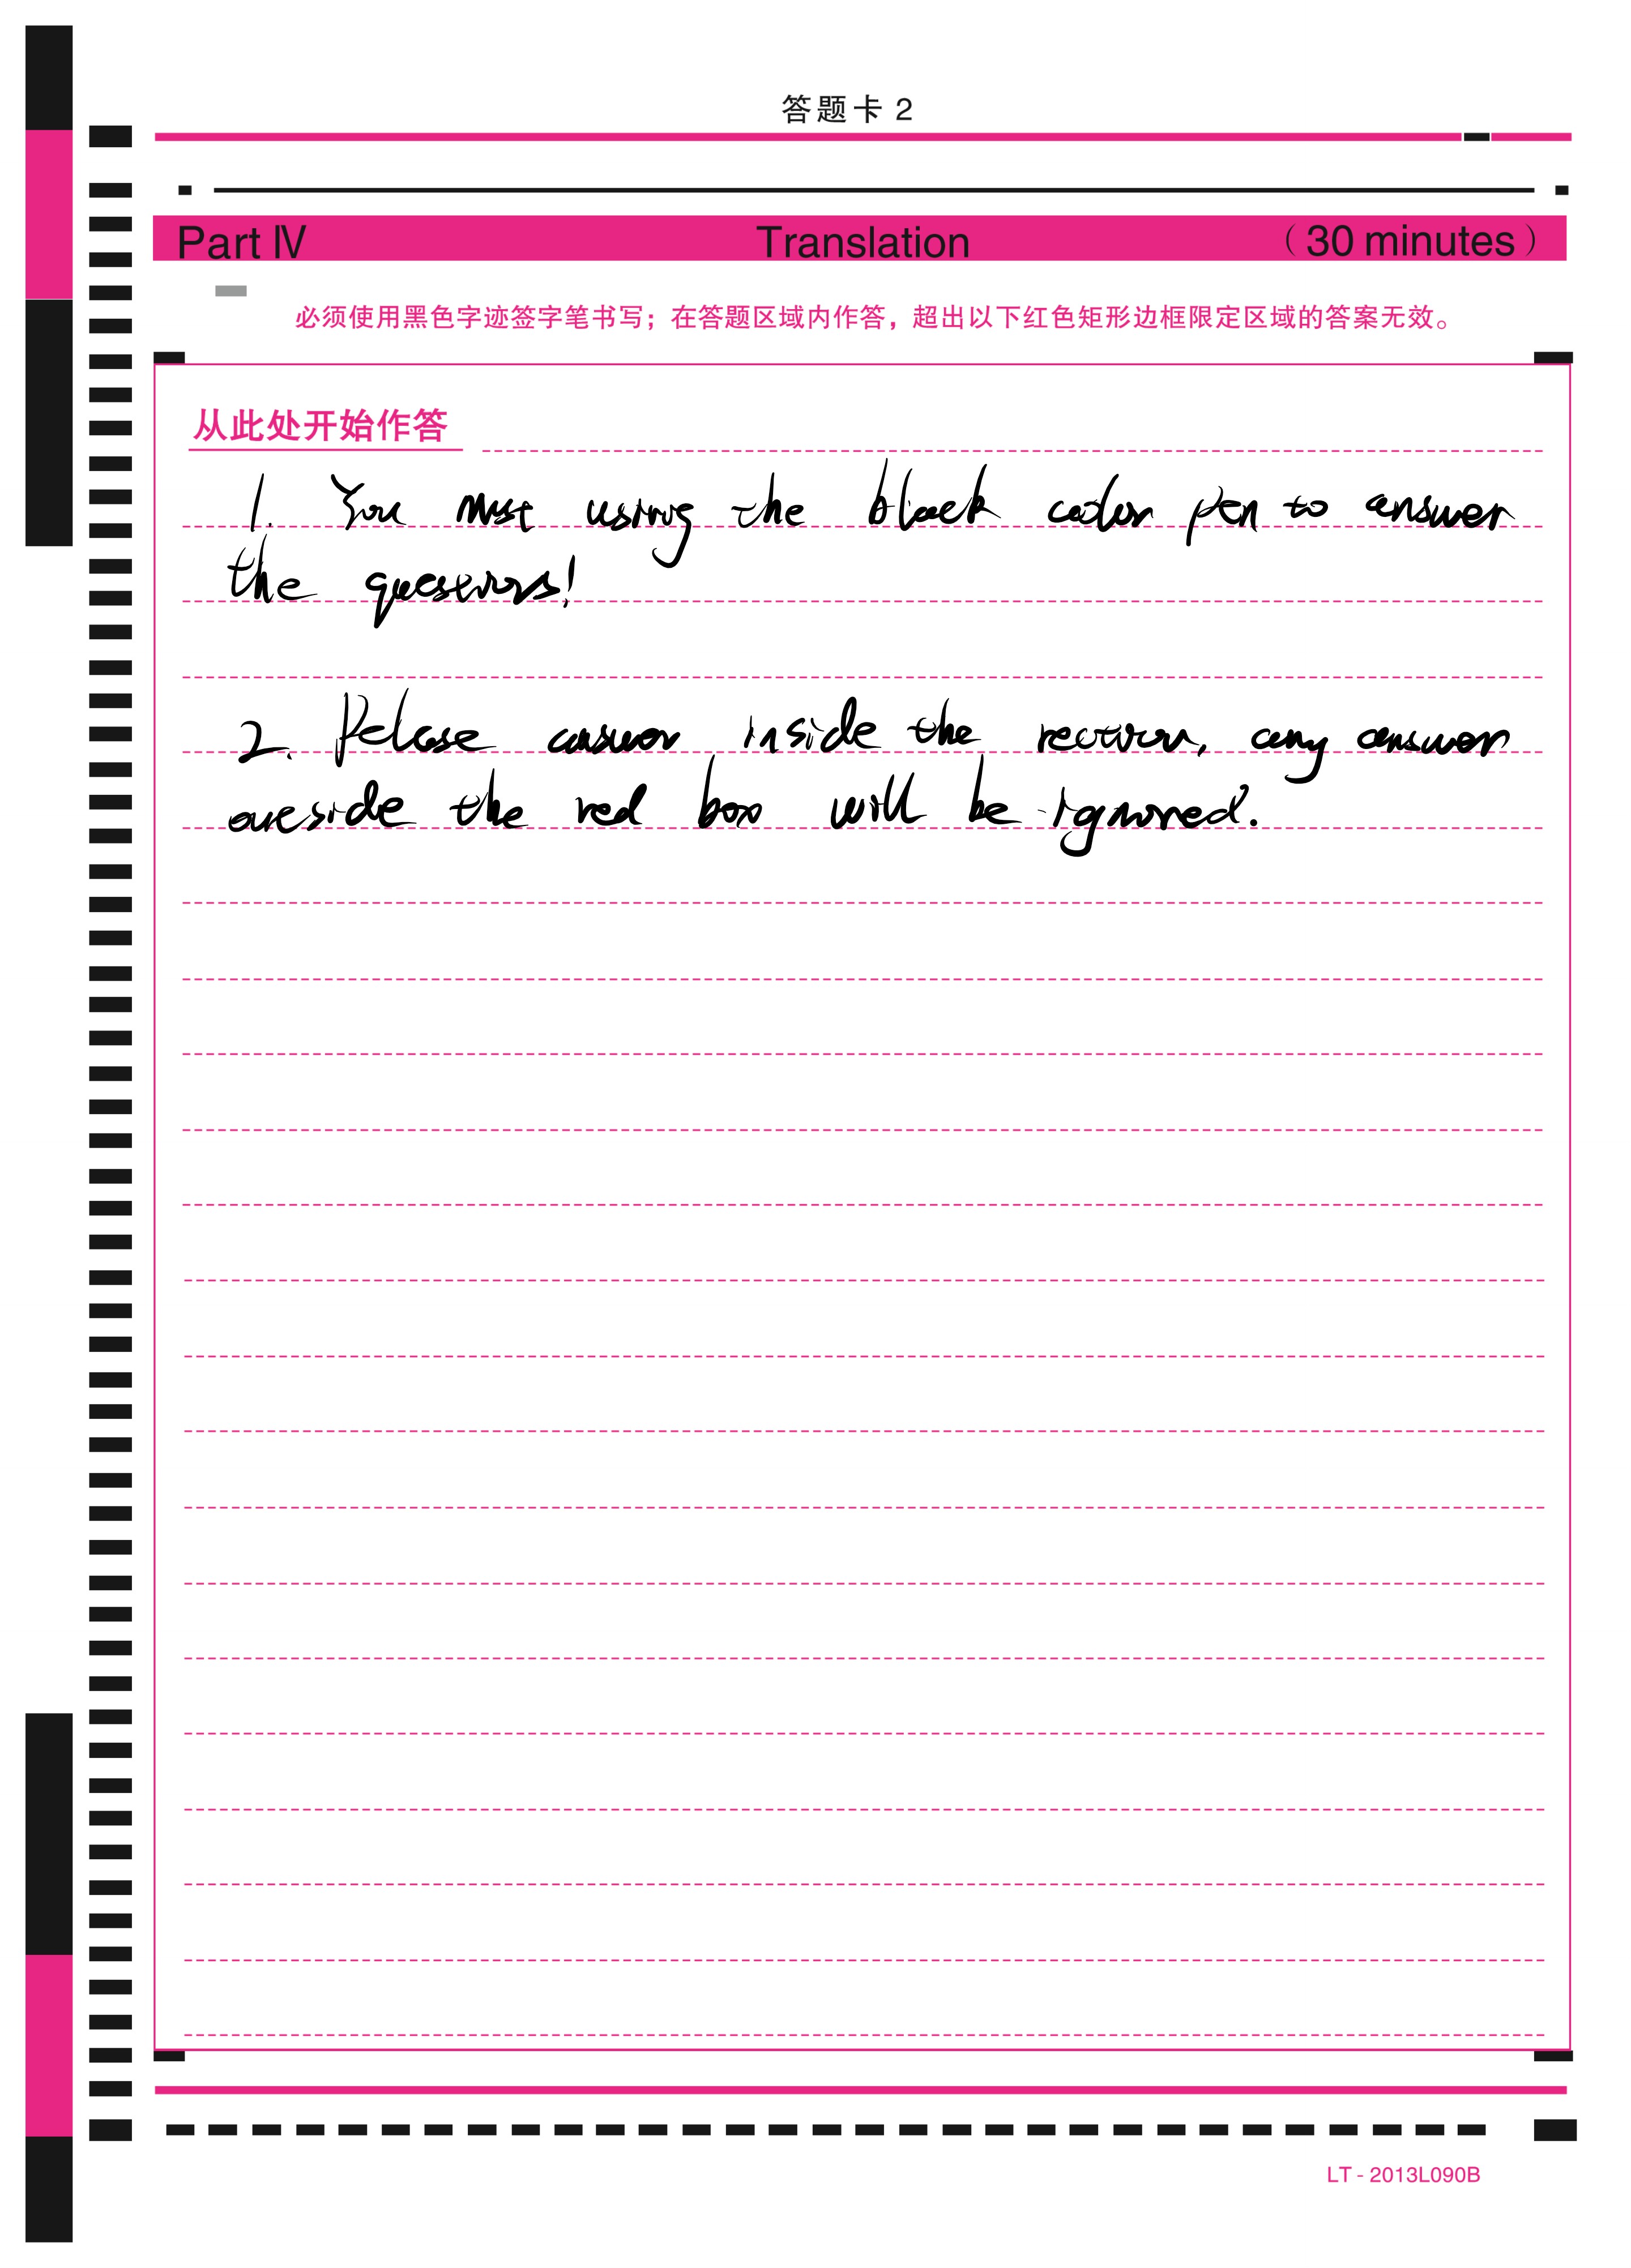 答题卡 2
Part Ⅳ Translation （30 minutes）
必须使用黑色字迹签字笔书写；在答题区域内作答，超出以下红色矩形边框限定区域的答案无效。
从此处开始作答
1. You must using the black color pen to answer
the questions!
2. Pelase answer inside the any answer
outside the red box will be ignored.
LT - 2013L090B